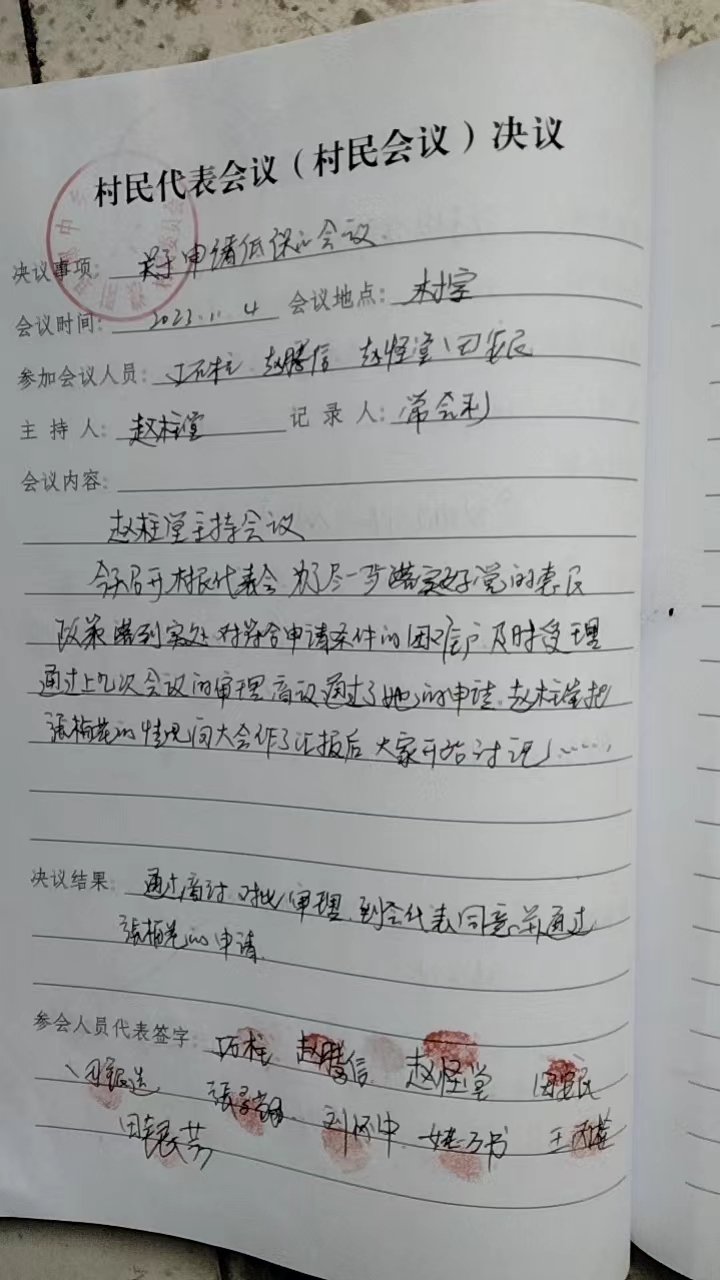 村民代表会议（村民会议）决议
决议事项: 关于申请低保的会议
会议时间: 2023.1.4 会议地点: 村室
参加会议人员: 石柱 赵腾信 赵怪堂 田宝民
主持人: 赵柱堂 记录人: 常会利
会议内容:
赵柱堂主持会议
今天召开村民代表会 为了尽一步落实好党的惠民
政策落到实处 对符合申请条件的困难户及时受理
通过上几次会议的审理商议通过了她的申请 赵柱堂把
張梅花的情况向大会作了汇报后 大家开始讨论……
决议结果: 通过商讨 对比 审理 到会代表同意并通过
張梅花的申请
参会人员代表签字: 石柱 赵腾信 赵怪堂 田宝民
刘怀中